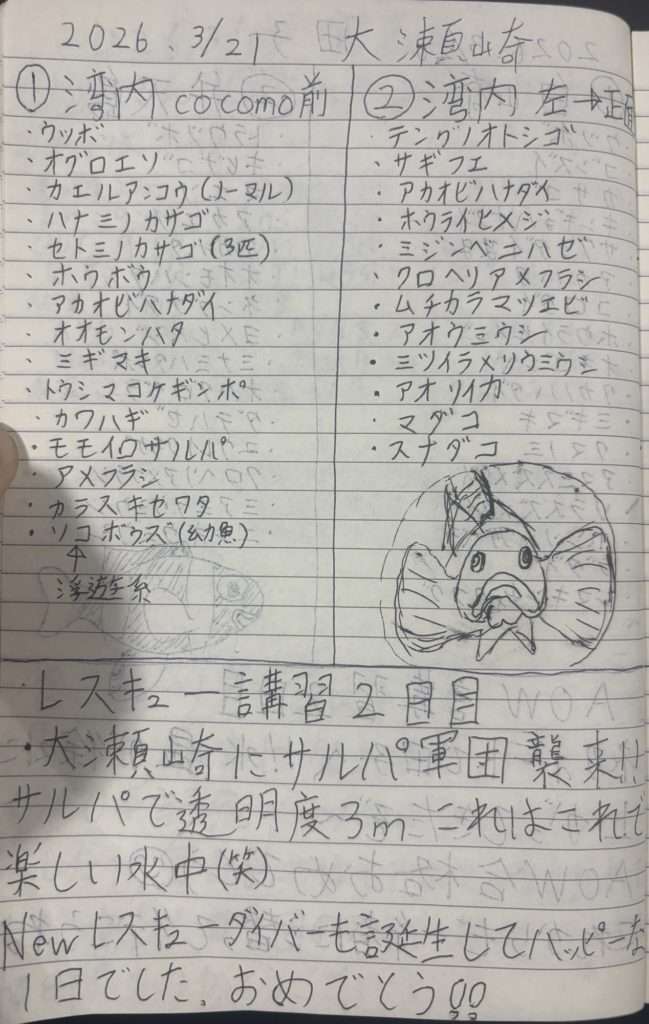 2026.3/21 大瀬崎
① 湾内 cocomo前
・ウツボ
・オグロエソ
・カエルアンコウ(ノーマル)
・ハナミノカサゴ
・セトミノカサゴ(3匹)
・ホウボウ
・アカオビハナダイ
・オオモンハタ
・ミギマキ
・トウシマコケギンポ
・カワハギ
・モモイロサルパ
・アメフラシ
・カラスキセワタ
・ソコボウズ(幼魚)
↑
浮遊系
② 湾内 左→正面
・テングノオトシゴ
・サギフエ
・アカオビハナダイ
・ホウライヒメジ
・ミジンベニハゼ
・クロヘリアメフラシ
・ムチカラマツエビ
・アオウミウシ
・ミツイラメリウミウシ
・アオリイカ
・マダコ
・スナダコ
レスキュー講習2日目
・大瀬崎にサルパ軍団襲来!!
サルパで透明度3m これはこれで
楽しい水中(笑)
Newレスキューダイバーも誕生してハッピーな
1日でした。おめでとう!!